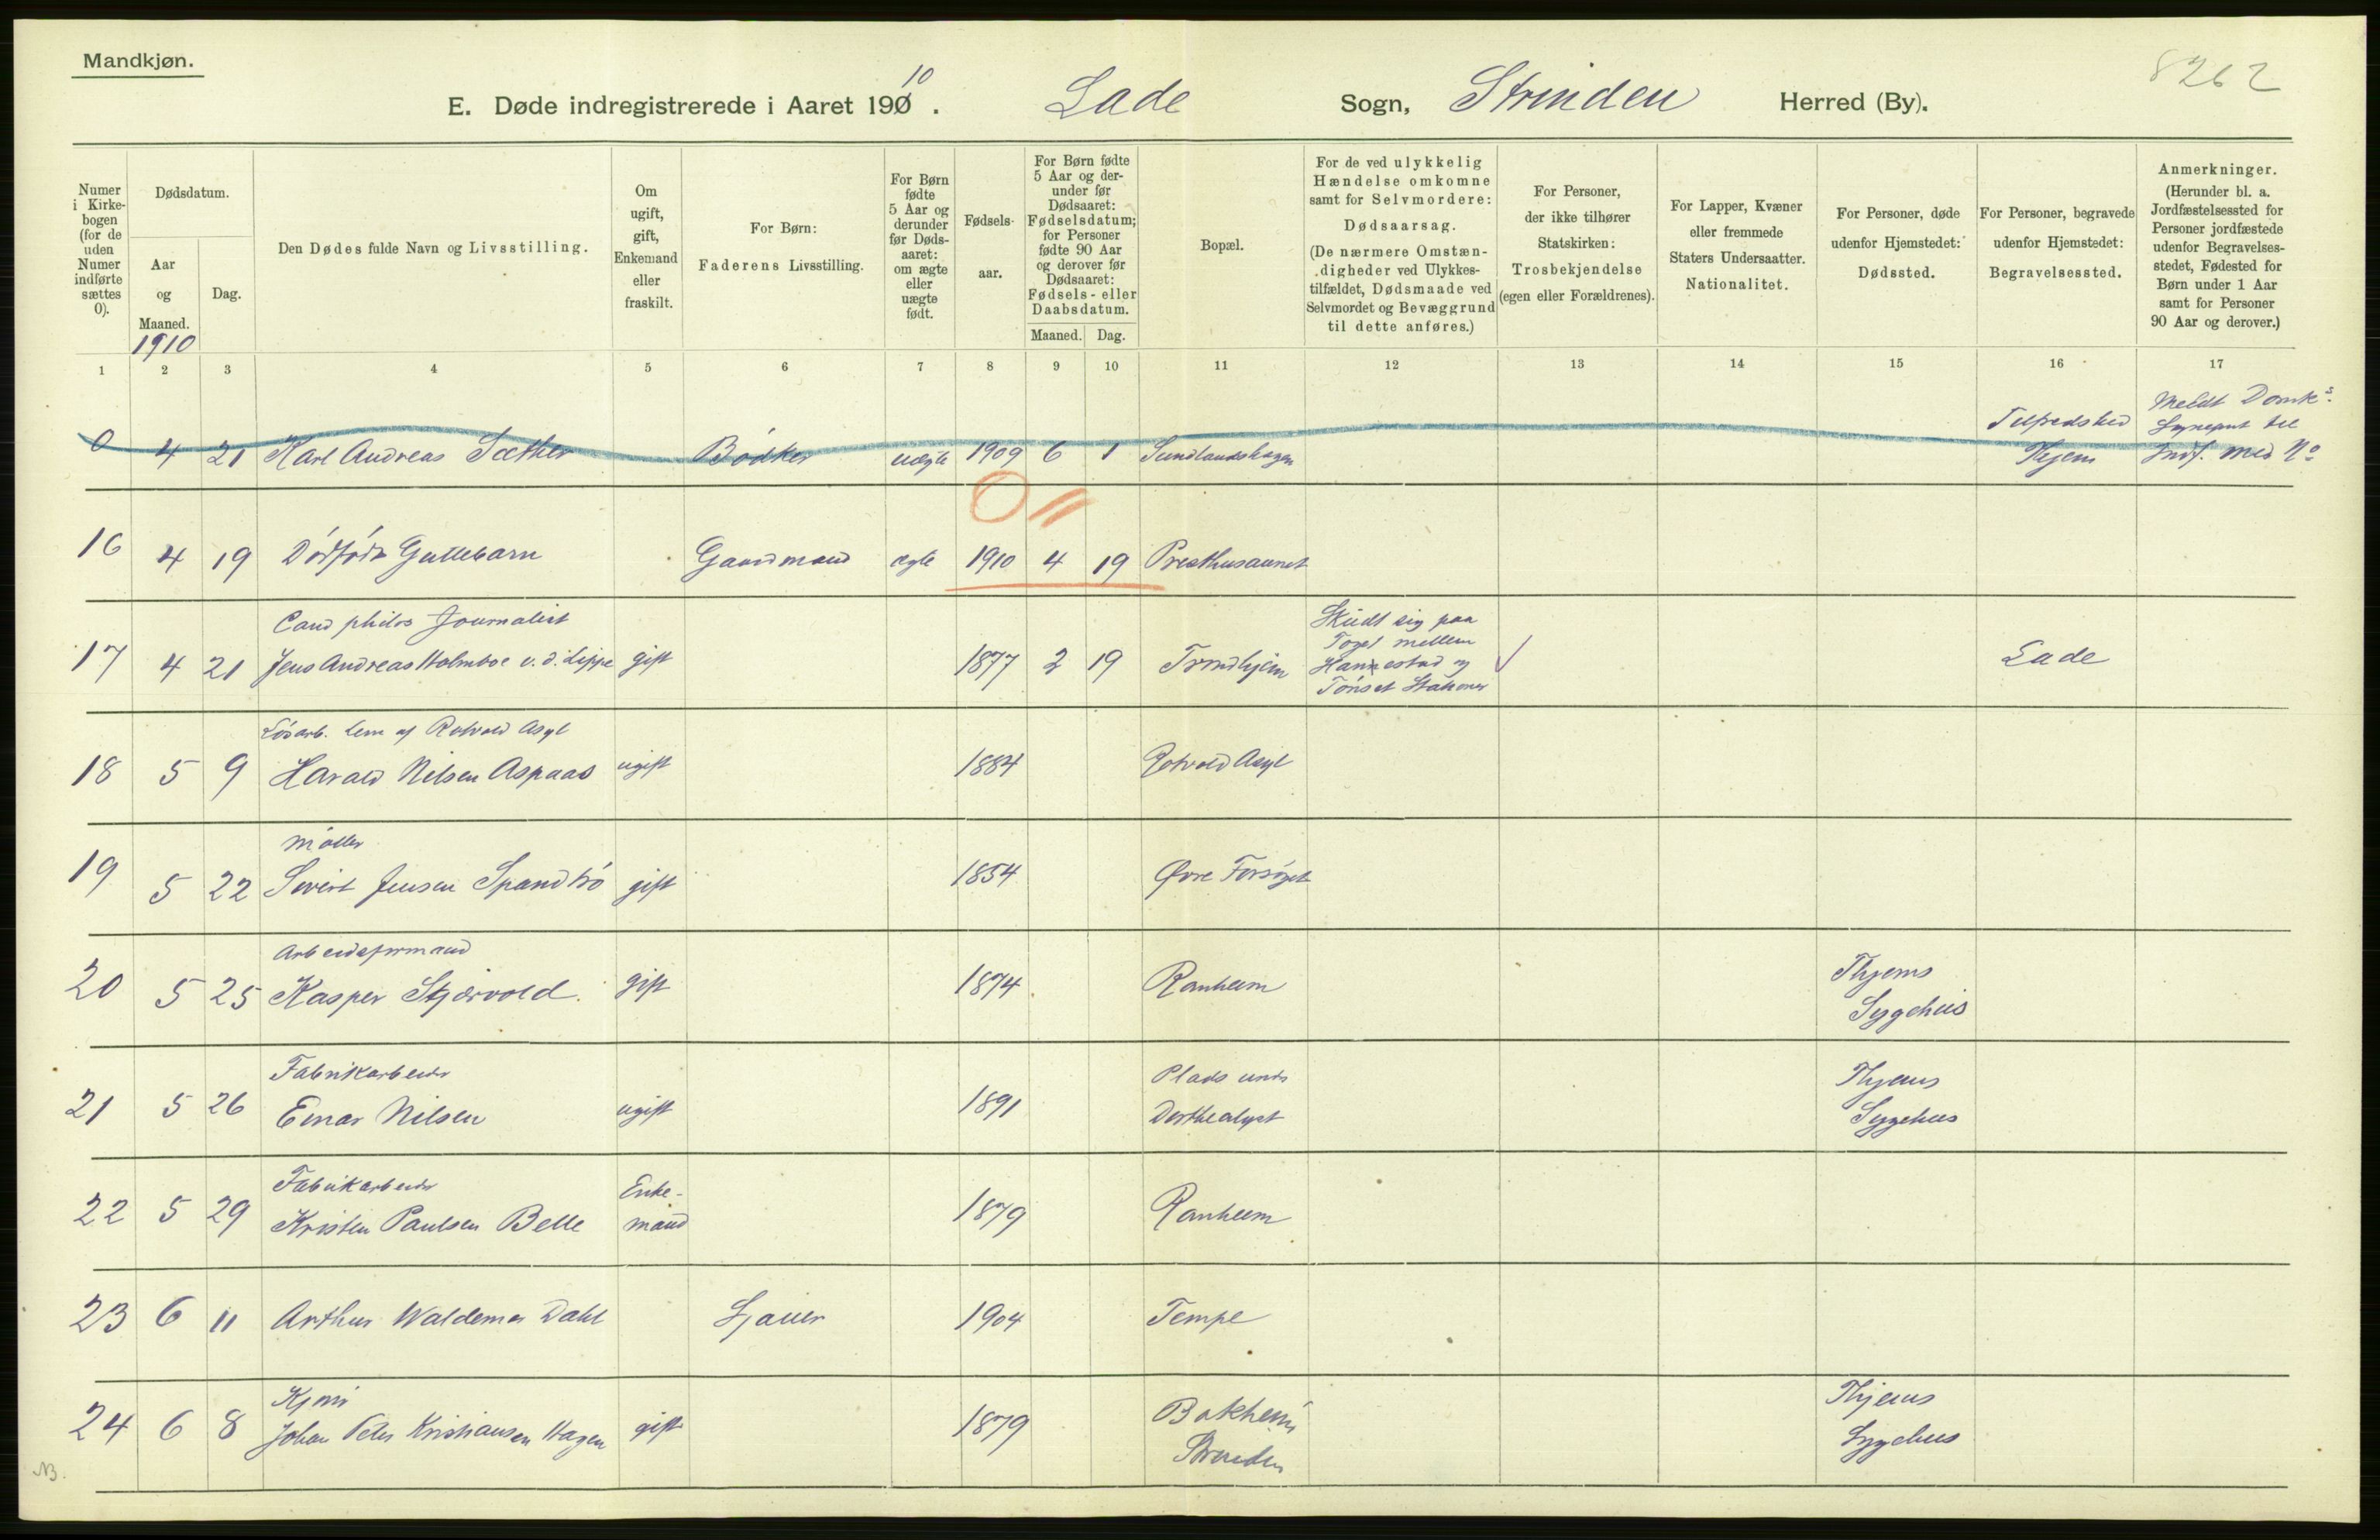 Mandkjøn.
8262
E. Døde indregistrerede i Aaret 190 10. Lade Sogn, Strinden Herred (By).
Numer i Kirke-bogen (for de uden Numer indførte sættes 0).
Dødsdatum.
Aar og Maaned.
1910
Dag.
Den Dødes fulde Navn og Livsstilling.
Om ugift, gift, Enkemand eller fraskilt.
For Børn: Faderens Livsstilling.
For Børn fødte 5 Aar og derunder før Døds-aaret: om ægte eller uægte født.
Fødsels-aar.
For Børn fødte 5 Aar og der-under før Dødsaaret: Fødselsdatum; for Personer fødte 90 Aar og derover før Dødsaaret: Fødsels- eller Daabsdatum.
Maaned. Dag.
Bopæl.
For de ved ulykkelig Hændelse omkomne samt for Selvmordere: Dødsaarsag. (De nærmere Omstæn-digheder ved Ulykkes-tilfældet, Dødsmaade ved Selvmordet og Bevæggrund til dette anføres.)
For Personer, der ikke tilhører Statskirken: Trosbekjendelse (egen eller Forældrenes).
For Lapper, Kvæner eller fremmede Staters Undersaatter. Nationalitet.
For Personer, døde udenfor Hjemstedet: Dødssted.
For Personer, begravede udenfor Hjemstedet: Begravelsessted.
Anmerkninger. (Herunder bl. a. Jordfæstelsessted for Personer jordfæstede udenfor Begravelses-stedet, Fødested for Børn under 1 Aar samt for Personer 90 Aar og derover.)
1 2 3 4 5 6 7 8 9 10 11 12 13 14 15 16 17
Meldt Domk.
Tilfredshed til
0 4 21 Karl Andreas Sæther Bødker uægte 1909 6 1 Sundlandshagen Thjem Indf. med No
0 11
16 4 19 Dødfødt Guttebarn Gaardmand ægte 1910 4 19 Presthusaunet
Cand philos Journalist
Skudt sig paa
Toget mellem
17 4 21 Jens Andreas Holmboe v. d. Lippe gift 1877 2 19 Trondhjem Hanestad og Lade
Tønset Stationer
Løsarb. lem af Rotvold Asyl
18 5 9 Harald Nilsen Aspaas ugift 1884 Rotvold Asyl
Møller
19 5 22 Sivert Jensen Spandbø gift 1854 Øvre Forsøget
Arbeidsformand
20 5 25 Kasper Stjørvold gift 1874 Ranheim Thjems
Sygehus
Fabrikarbeider
Plads under
Thjems
21 5 26 Einar Nilsen ugift 1891 Dorthealyst Sygehus
Fabrikarbeider
Enke-
22 5 29 Kristen Paulsen Belle mand 1879 Ranheim
23 6 11 Arthur Waldemar Dahl Sjauer 1904 Tempe
Thjems
24 6 8 Johan Peter Kristiansen Hagen gift 1879 Bakhem Sygehus
Strinden
NB.